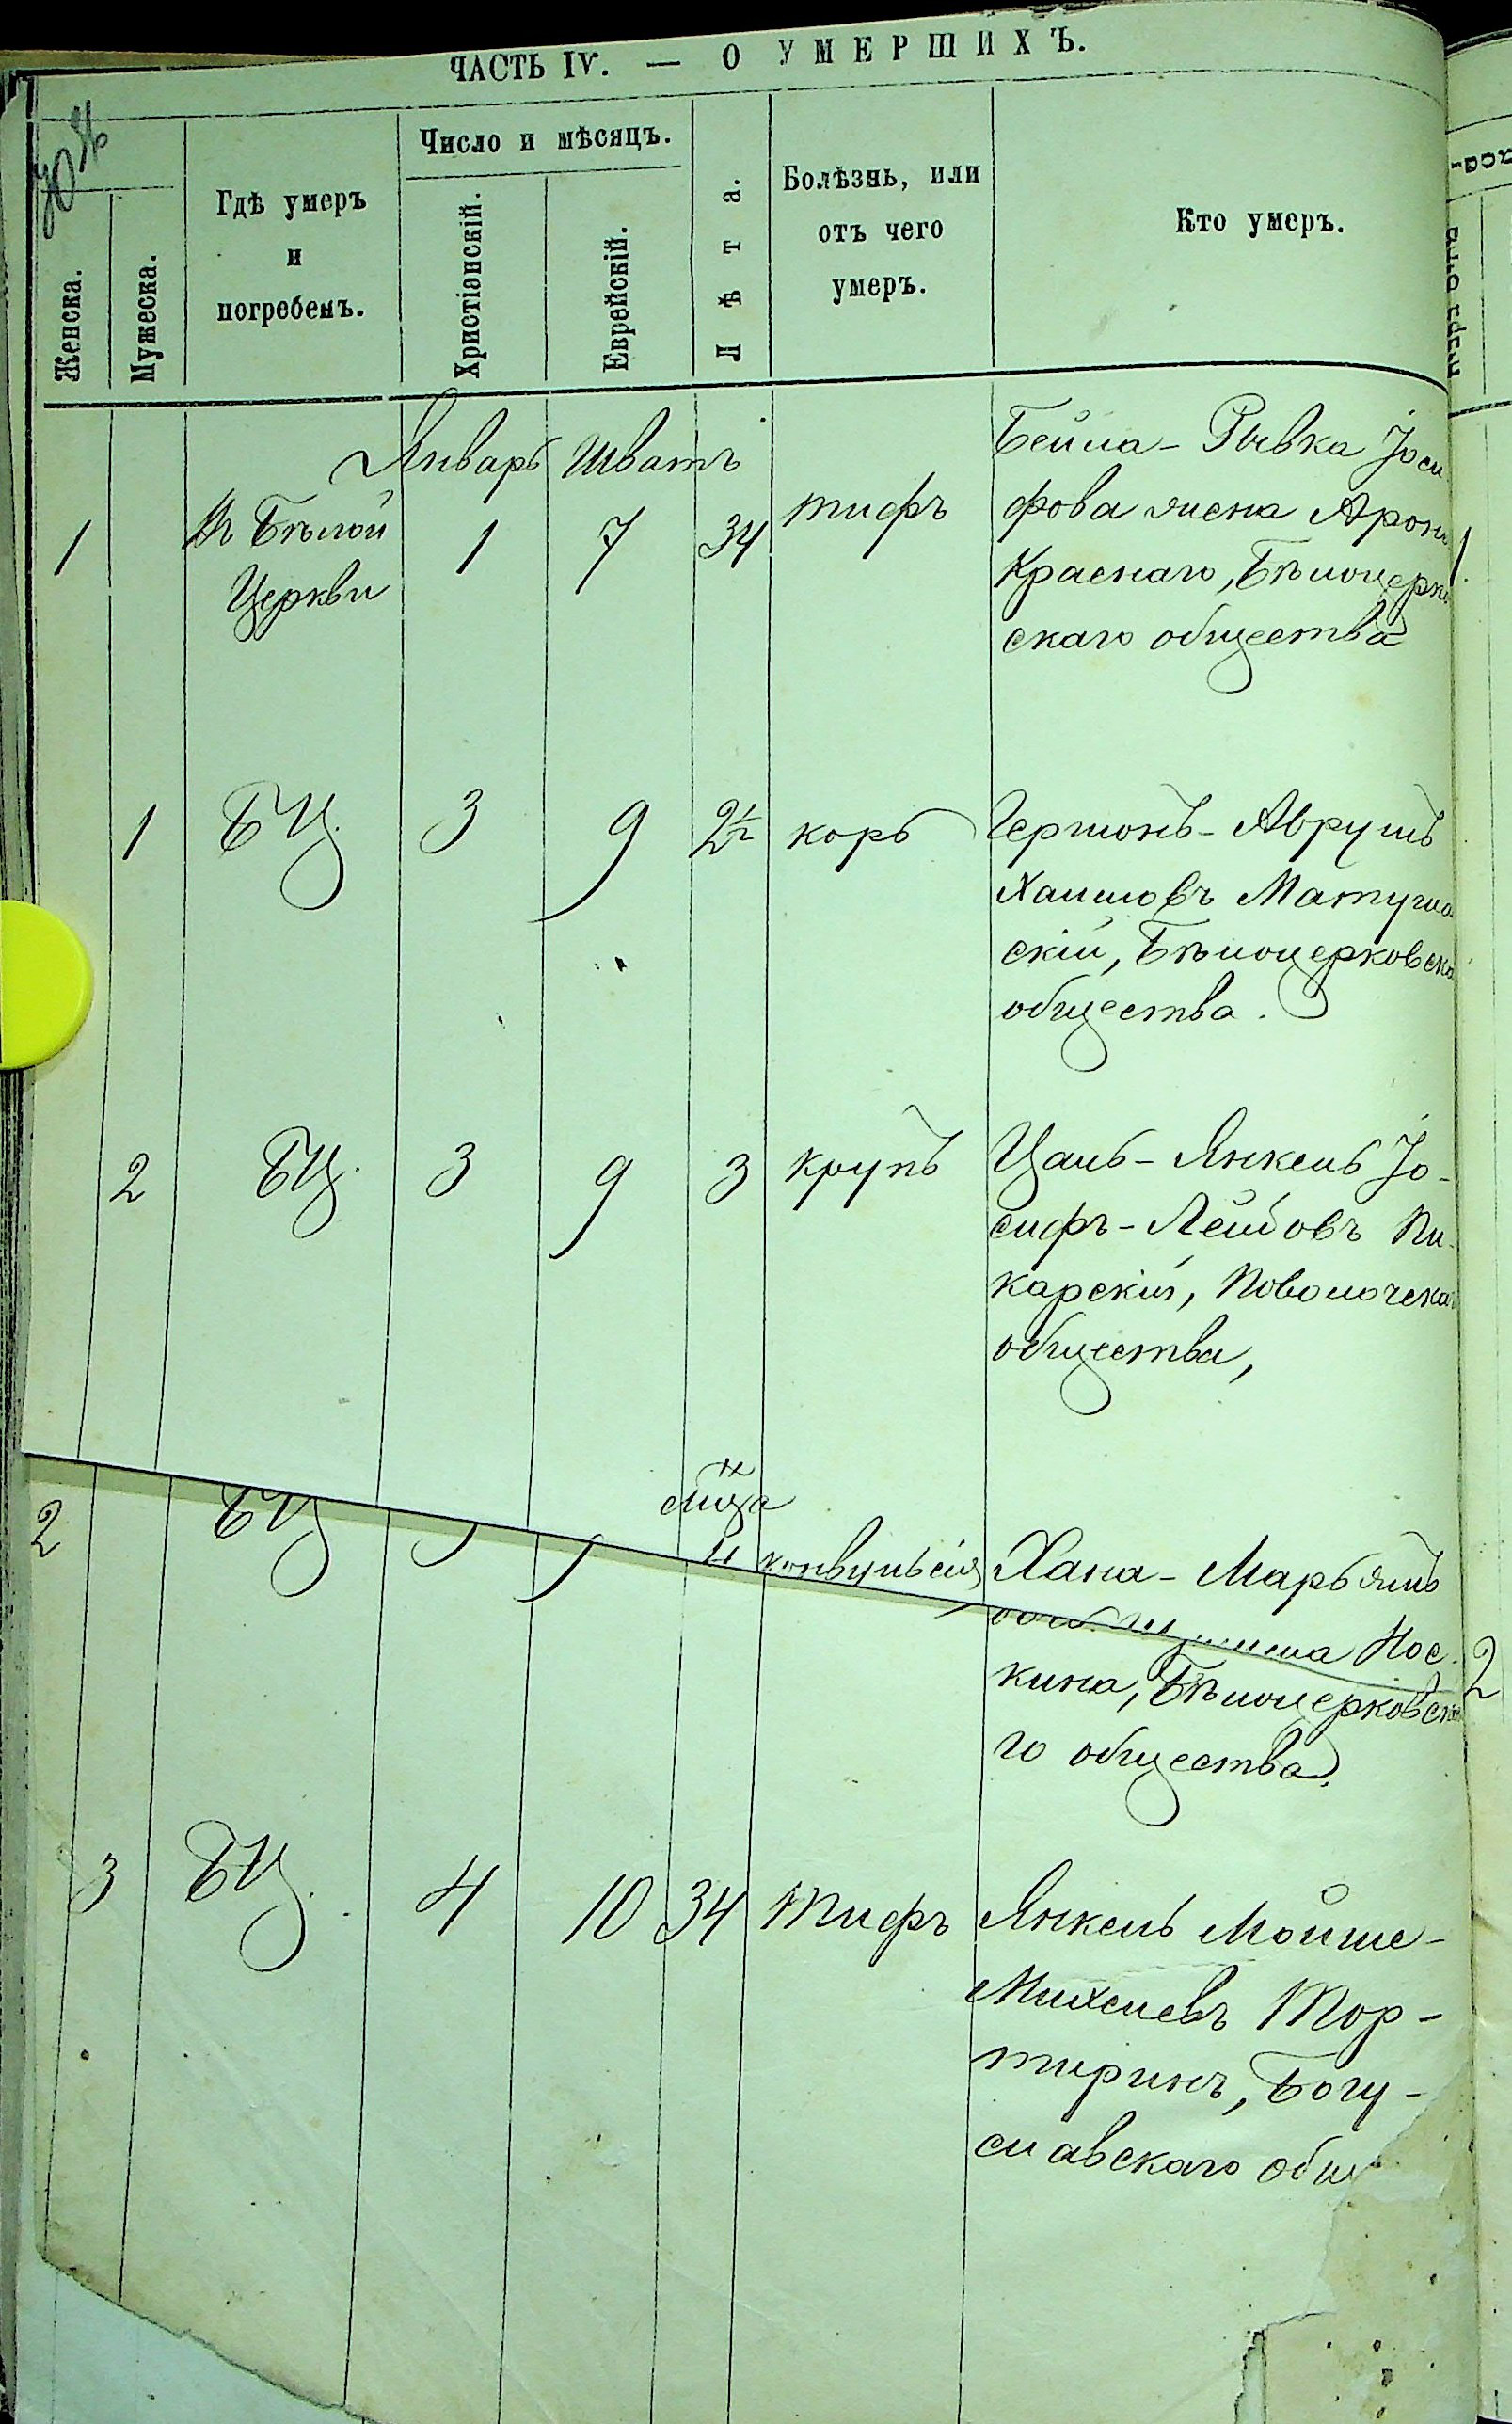 ЧАСТЬ IV. — О УМЕРШИХЪ.
Женска.
Мужеска.
Гдѣ умеръ
и
погребенъ.
Число и мѣсяцъ.
Христіянскій.
Еврейскій.
Лѣта.
Болѣзнь, или
отъ чего
умеръ.
Кто умеръ.
Январь Шватъ
1 Въ Бѣлой 1 7 34 тифъ
Церкви
Бейла-Рывка Іоси
фова жена Арона
Краснаго, Бѣлоцерков
скаго общества
1
1 БЦ. 3 9 2½ корь
Гершонъ-Аврумъ
Хаимовъ
скій, Бѣлоцерковска
общества.
2 БЦ. 3 9 3 крупъ
Цаль-Янкель Іо-
сифъ-Лейбовъ Пи-
карскій, Поволочска
общества,
2 БЦ мца конвульсія
Хана-Марьямъ
Нос
кина, Бѣлоцерковска
го общества.
2
3 БЦ. 4 10 34 Тифъ
Янкель Мойше-
Михелевъ Тор-
тиринъ, Богу-
славскаго общ